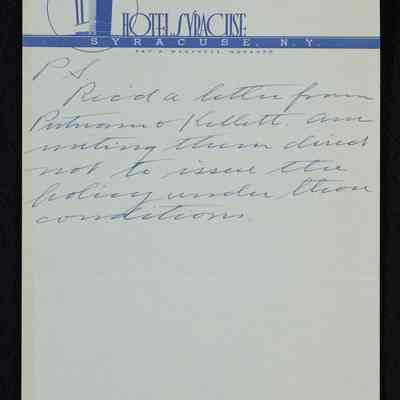 HOTEL SYRACUSE
SYRACUSE, N.Y.
P.S.
Rec'd a letter from
Putnam & Kellett. Am
writing them direct
not to issue the
policy under those
conditions.